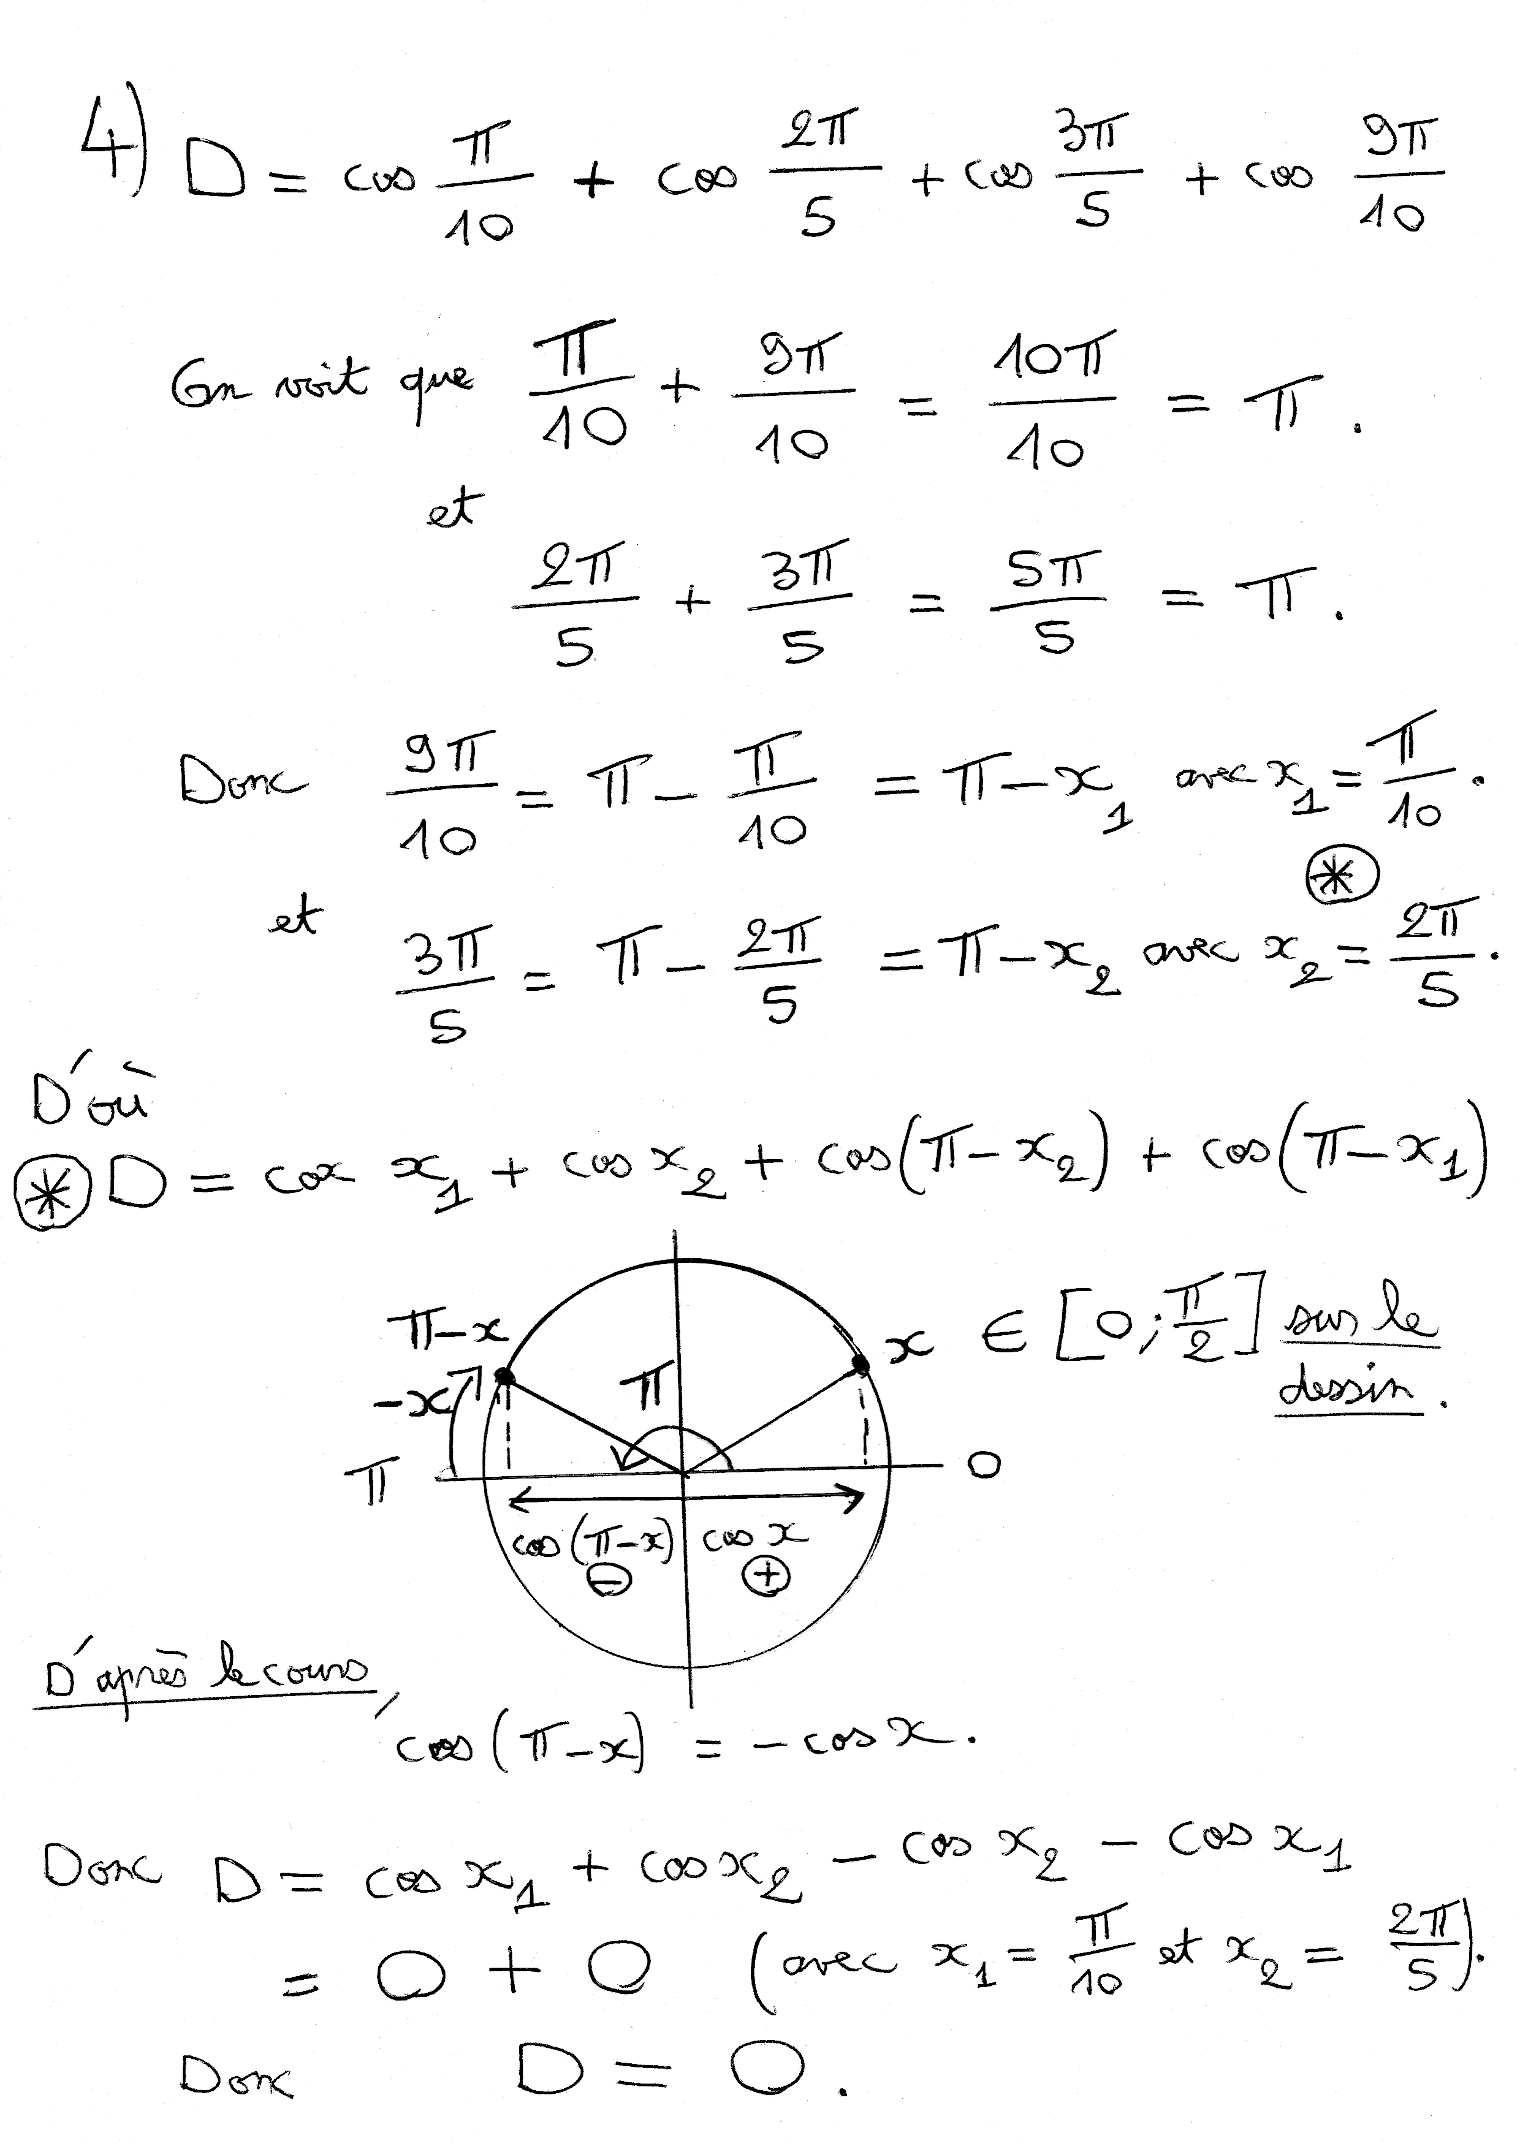 4) D = cos π/10 + cos 2π/5 + cos 3π/5 + cos 9π/10
On voit que π/10 + 9π/10 = 10π/10 = π.
et
2π/5 + 3π/5 = 5π/5 = π.
Donc 9π/10 = π - π/10 = π - x₁ avec x₁ = π/10.
⊛
et 3π/5 = π - 2π/5 = π - x₂ avec x₂ = 2π/5.
D'où
⊛ D = cos x₁ + cos x₂ + cos(π - x₂) + cos(π - x₁)
π-x
x ∈ [0; π/2] sur le
dessin.
-x
π
π
0
cos(π-x) cos x
⊖ ⊕
D'après le cours,
cos(π-x) = -cos x.
Donc D = cos x₁ + cos x₂ - cos x₂ - cos x₁
= 0 + 0 (avec x₁ = π/10 et x₂ = 2π/5).
Donc D = 0.